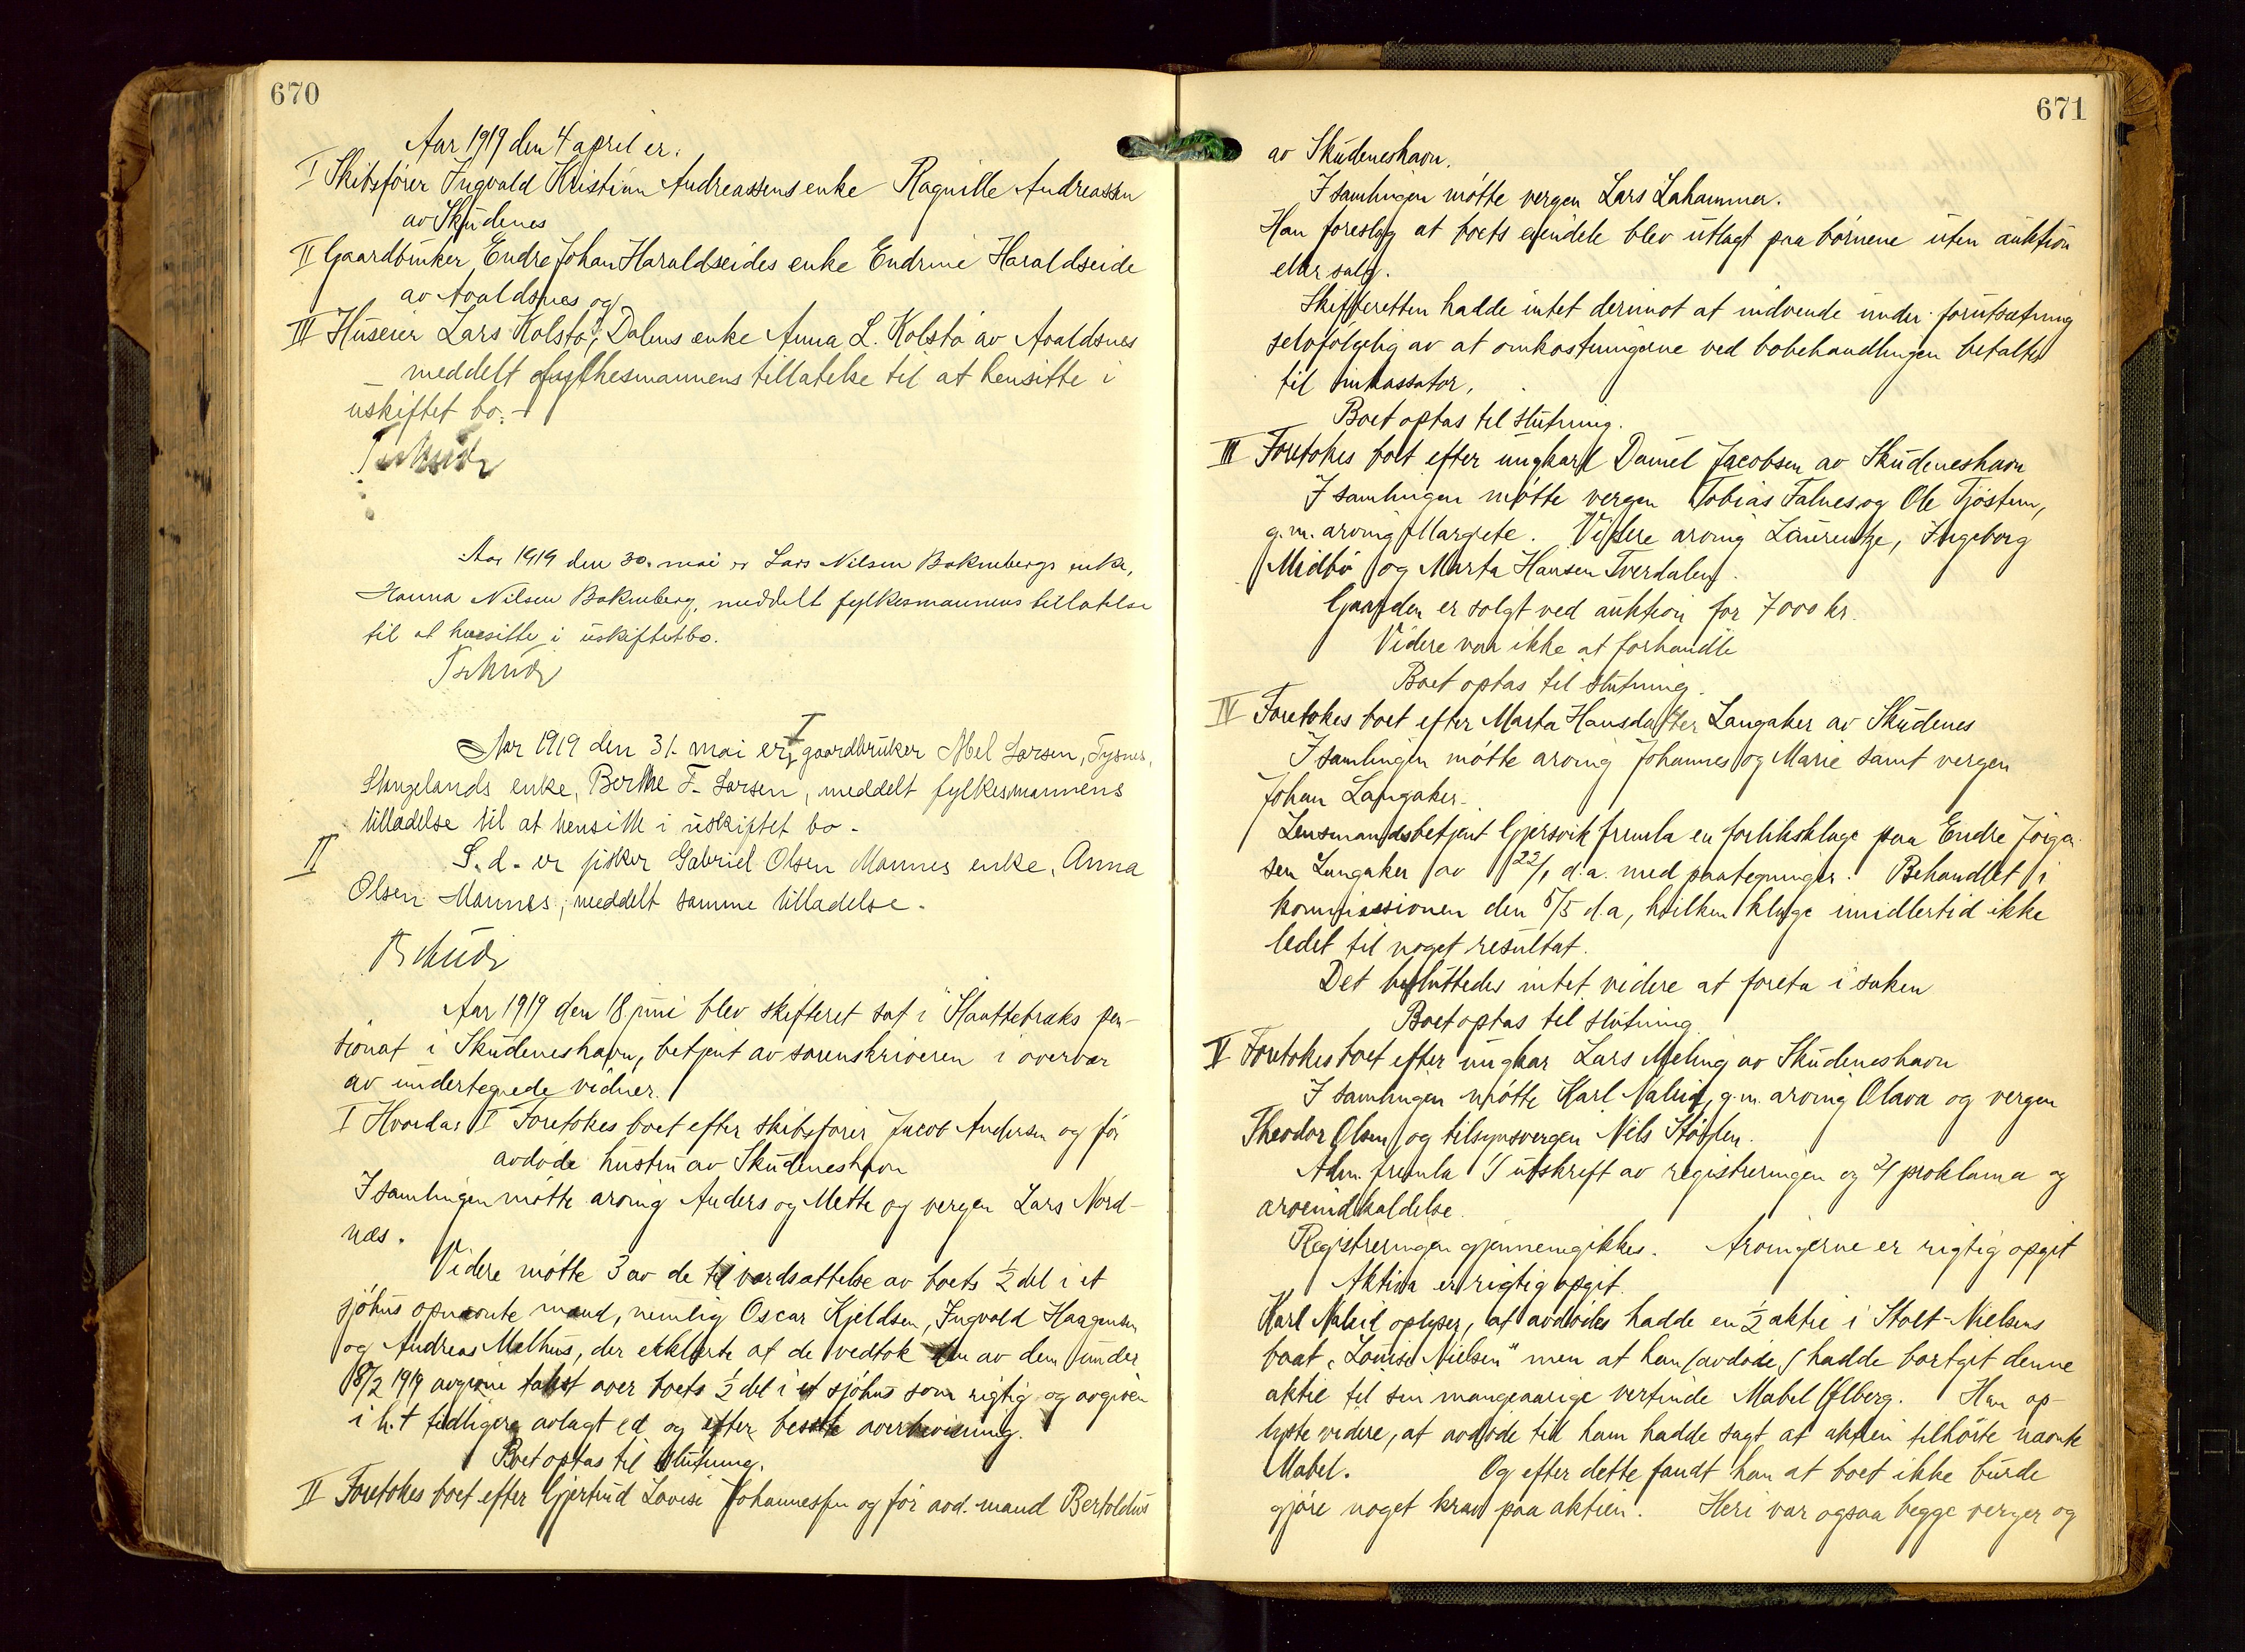 670
Aar 1919 den 4 april er:
I Skibsfører Ingvald Kristian Andreassens enke Ragnille Andreassen
av Skudenes
II Gaardbruker Endre Johan Haraldseides enke Endrine Haraldseide
av Avaldsnes og
III Huseier Lars Kolstø, Dalens enke Anna L. Kolstø av Avaldsnes
meddelt fylkesmannens tillatelse til at hensitte i
uskiftet bo. -
Tschudi
Aar 1919 den 30. mai er Lars Nilsen Boknebergs enke,
Hanna Nilsen Bokneberg, meddelt fylkesmannens tillatelse
til at hensitte i uskiftet bo.
Tschudi
Aar 1919 den 31. mai er I gaardbruker Abel Larsen, Tysnes,
Stangelands enke, Berthe F. Larsen, meddelt fylkesmannens
tilladelse til at hensitte i uskiftet bo -
II S. d. er fisker Gabriel Olsen Mannes enke, Anna
Olsen Mannes, meddelt samme tilladelse.
Tschudi
Aar 1919 den 18 juni blev skifteret sat i pen-
sionat i Skudeneshavn, betjent av sorenskriveren i overvær
av undertegnede vidner.
I Hvorda: I Foretokes boet efter skibsfører Jacob Andersen og før
avdøde hustru av Skudeneshavn
I samlingen møtte arving Anders og Mette og vergen Lars Nord-
næs.
Videre møtte 3 av de til værdsættelse av boets ½ del i et
sjøhus opnævnte mænd, nemlig Oscar Kjeldsen, Ingvald Haagensen
og Andreas Melhus, der erklærte at de vedtok den av dem under
18/2 1919 avgivne takst over boets ½ del i et sjøhus som rigtig og avgiven
i h.t tidligere avlagt ed og efter bedste overbevisning.
Boet optas til slutning.
II Foretokes boet efter Gjertrud Lovise Johannessen og før avd. mand Bertoldus
671
av Skudeneshavn.
I samlingen møtte vergen Lars Lahammer.
Han foreslog at boets eiendele blev utlagt paa børnene uten auktion
eller salg.
Skifteretten hadde intet derimot at indvende under forutsætning
selvfølgelig av at omkostningerne ved bobehandlingen betaltes
til inkassator.
Boet optas til slutning.
III Foretokes boet efter ungkarl Daniel Jacobsen av Skudeneshavn
I samlingen møtte vergen Tobias Falnes og Ole Tjøstem,
g. m. arving Margrete. Videre arving Laurentze, Ingeborg
Midbø og Marta Hansen Tverdalen.
Gaarden er solgt ved auktion for 7000 kr.
Videre var ikke at forhandle
Boet optas til slutning.
IV Foretokes boet efter Marta Hansdatter Langaker av Skudenes
I samlingen møtte arving Johannes og Marie samt vergen
Johan Langaker.
Lensmandsbetjent Gjersvik fremla en forliksklage paa Endre Jørgen-
sen Langaker av 22/1 d.a. med paategninger. Behandlet i
kommissionen den 5/5 d.a, hvilken klage imidlertid ikke
ledet til noget resultat.
Det besluttedes intet videre at foreta i saken
Boet optas til slutning.
V Foretokes boet efter ungkar Lars Meling av Skudeneshavn
I samlingen møtte Karl Naleid, g. m. arving Olava og vergen
Theodor Olsen og tilsynsvergen Nils Støylen.
Adm. fremla 1/ utskrift av registreringen og 2/ proklama og
arveindkaldelse.
Registreringen gjennemgikkes. Arvingerne er rigtig opgit
Aktiva er rigtig opgit.
Karl Naleid oplyser, at avdødes hadde en ½ aktie i Stolt-Nielsens
baat „Louise Nielsen" men at han (avdøde) hadde bortgit denne
aktie til sin mangeaarige vertinde Mabel Øflberg. Han op-
lyste videre, at avdøde til ham hadde sagt at aktien tilhørte nævnte
Mabel. Og efter dette fandt han at boet ikke burde
gjøre noget krav paa aktien. Heri var ogsaa begge verger og